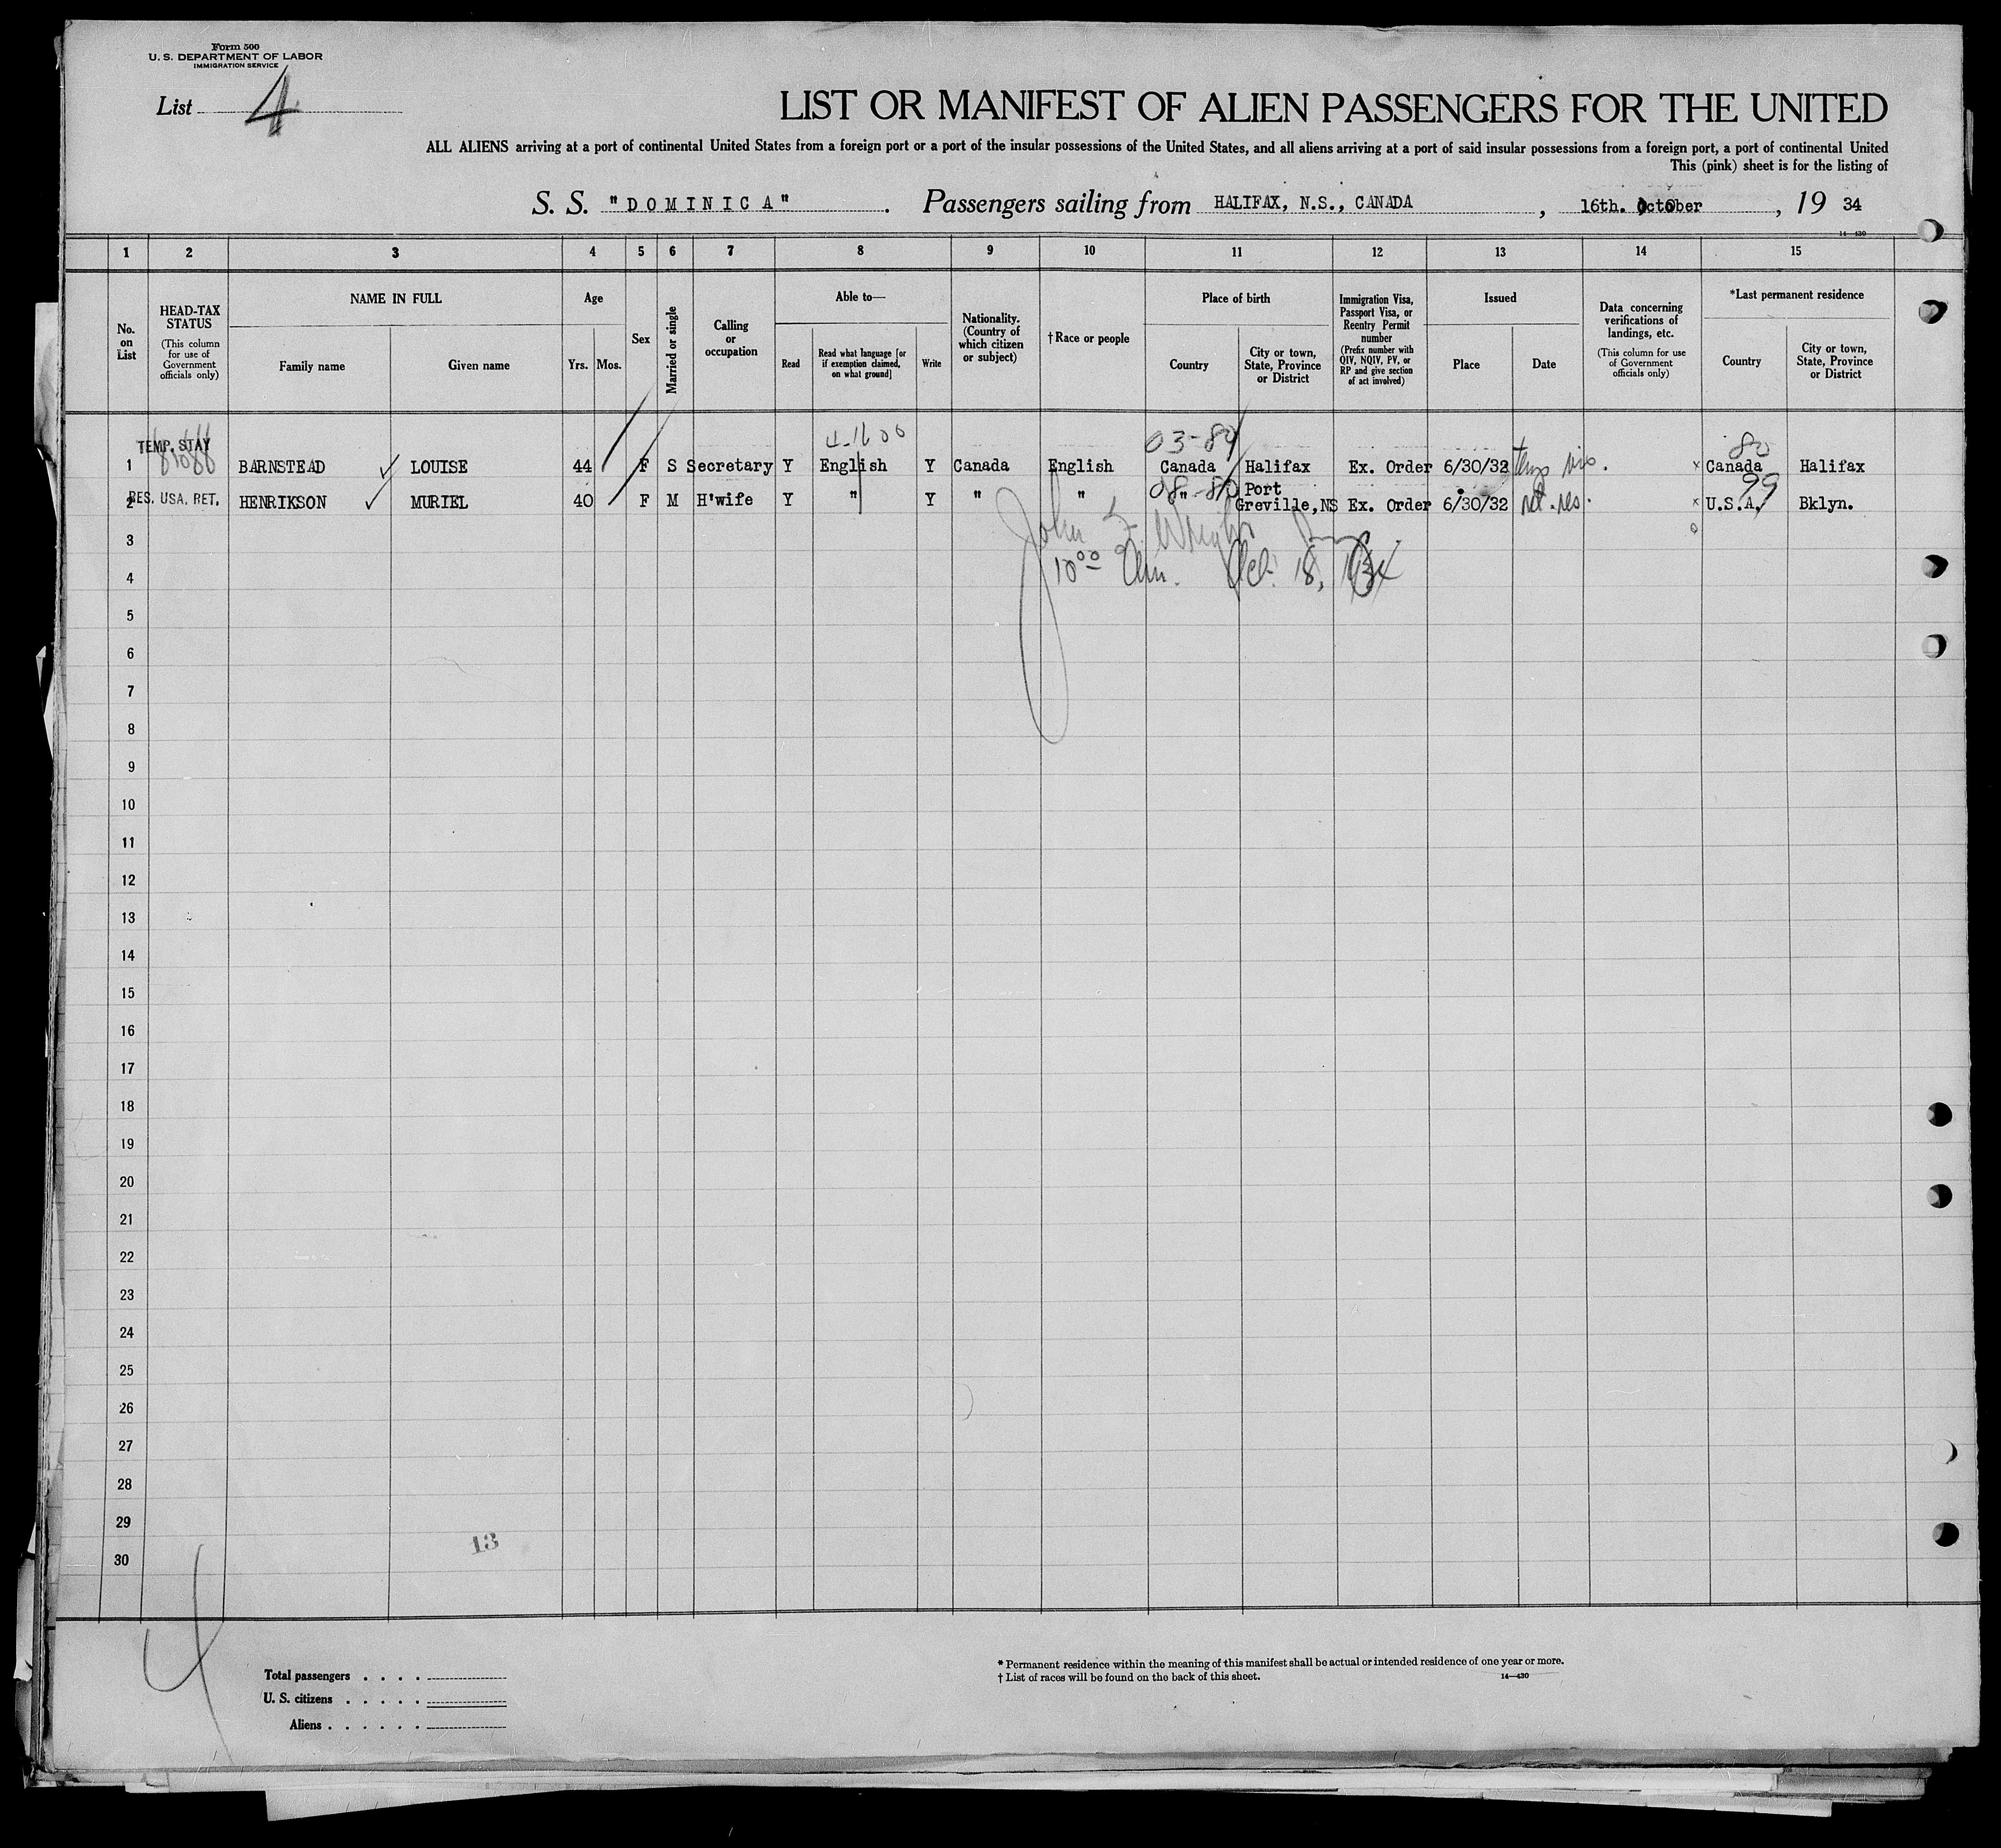 Form 500
U. S. DEPARTMENT OF LABOR
IMMIGRATION SERVICE
List 4
LIST OR MANIFEST OF ALIEN PASSENGERS FOR THE UNITED
ALL ALIENS arriving at a port of continental United States from a foreign port or a port of the insular possessions of the United States, and all aliens arriving at a port of said insular possessions from a foreign port, a port of continental United
This (pink) sheet is for the listing of
S. S. "DOMINICA". Passengers sailing from HALIFAX, N.S., CANADA, 16th. October, 19 34
14—430
1 2 3 4 5 6 7 8 9 10 11 12 13 14 15
No. on List
HEAD-TAX STATUS
(This column for use of Government officials only)
NAME IN FULL
Family name
Given name
Age
Yrs.
Mos.
Sex
Married or single
Calling or occupation
Able to—
Read
Read what language [or if exemption claimed, on what ground]
Write
Nationality. (Country of which citizen or subject)
† Race or people
Place of birth
Country
City or town, State, Province or District
Immigration Visa, Passport Visa, or Reentry Permit number
(Prefix number with QIV, NQIV, PV, or RP and give section of act involved)
Issued
Place
Date
Data concerning verifications of landings, etc.
(This column for use of Government officials only)
*Last permanent residence
Country
City or town, State, Province or District
TEMP. STAY 03-80 80
1 BARNSTEAD LOUISE 44 F S Secretary Y English Y Canada English Canada Halifax Ex. Order 6/30/32 x Canada Halifax
99
2 RES. USA. RET. HENRIKSON MURIEL 40 F M H'wife Y " Y " " " Port Greville, NS Ex. Order 6/30/32 ret. res. x U.S.A. Bklyn.
John Wright
10 00 Am. Oct. 18, 1934
3
4
5
6
7
8
9
10
11
12
13
14
15
16
17
18
19
20
21
22
23
24
25
26
27
28
29
30
13
4
Total passengers . . . .
U. S. citizens . . . . .
Aliens . . . . . .
* Permanent residence within the meaning of this manifest shall be actual or intended residence of one year or more.
† List of races will be found on the back of this sheet.
14—430